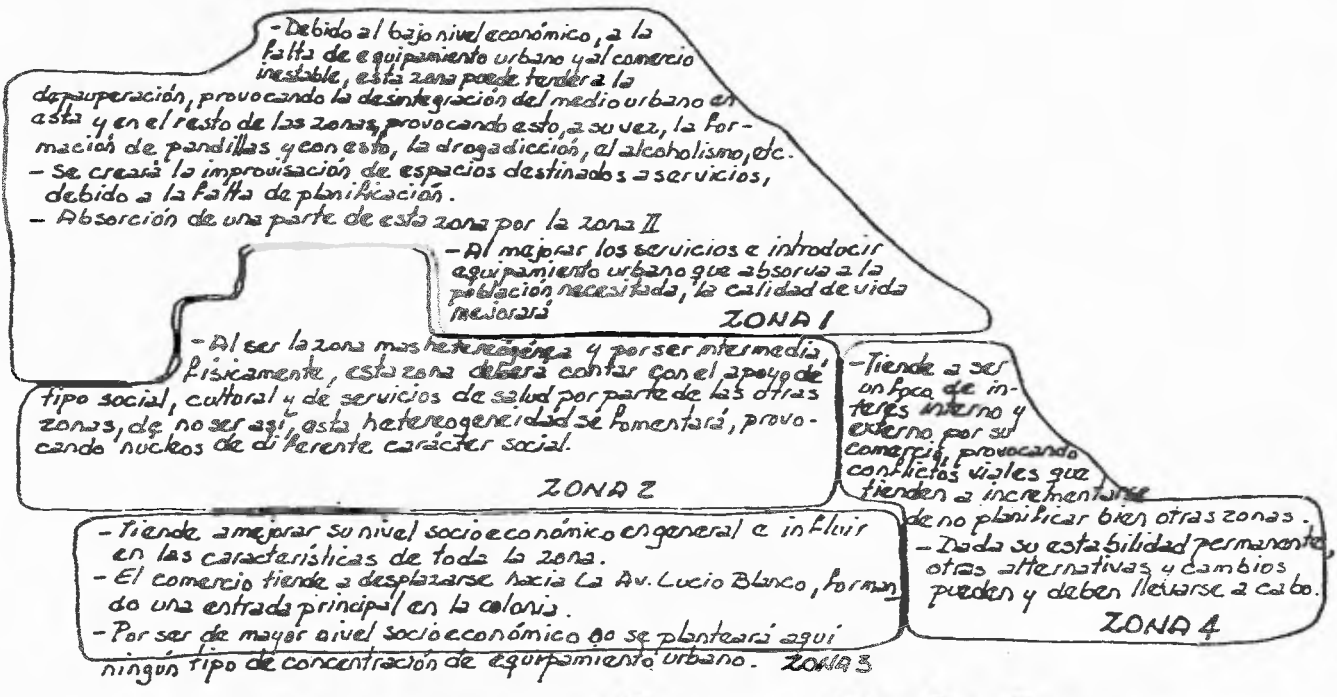 - Debido al bajo nivel económico, a la
falta de equipamiento urbano y al comercio
inestable, esta zona puede tender a la
depauperación, provocando la desintegración del medio urbano en
esta y en el resto de las zonas, provocando esto, a su vez, la for-
mación de pandillas y con esto, la drogadicción, el alcoholismo, etc.
- Se creará la improvisación de espacios destinados a servicios,
debido a la falta de planificación.
- Absorción de una parte de esta zona por la zona II
- Al mejorar los servicios e introducir
equipamiento urbano que absorva a la
población necesitada, la calidad de vida
mejorará
ZONA 1
- Al ser la zona mas heterogénea y por ser intermedia,
físicamente, esta zona deberá contar con el apoyo de
tipo social, cultural y de servicios de salud por parte de las otras
zonas, de no ser así, esta hetereogeneidad se fomentará, provo-
cando nucleos de diferente carácter social.
ZONA 2
- Tiende a mejorar su nivel socioeconómico en general e influir
en las características de toda la zona.
- El comercio tiende a desplazarse hacia La Av. Lucio Blanco, forman
do una entrada principal en la colonia.
- Por ser de mayor nivel socioeconómico no se planteará aquí
ningún tipo de concentración de equipamiento urbano.
ZONA 3
- Tiende a ser
un foco de in-
teres interno y
externo por su
comercio, provocando
conflictos viales que
tienden a incrementarse
de no planificar bien otras zonas.
- Dada su estabilidad permanente,
otras alternativas y cambios
pueden y deben llevarse a cabo.
ZONA 4